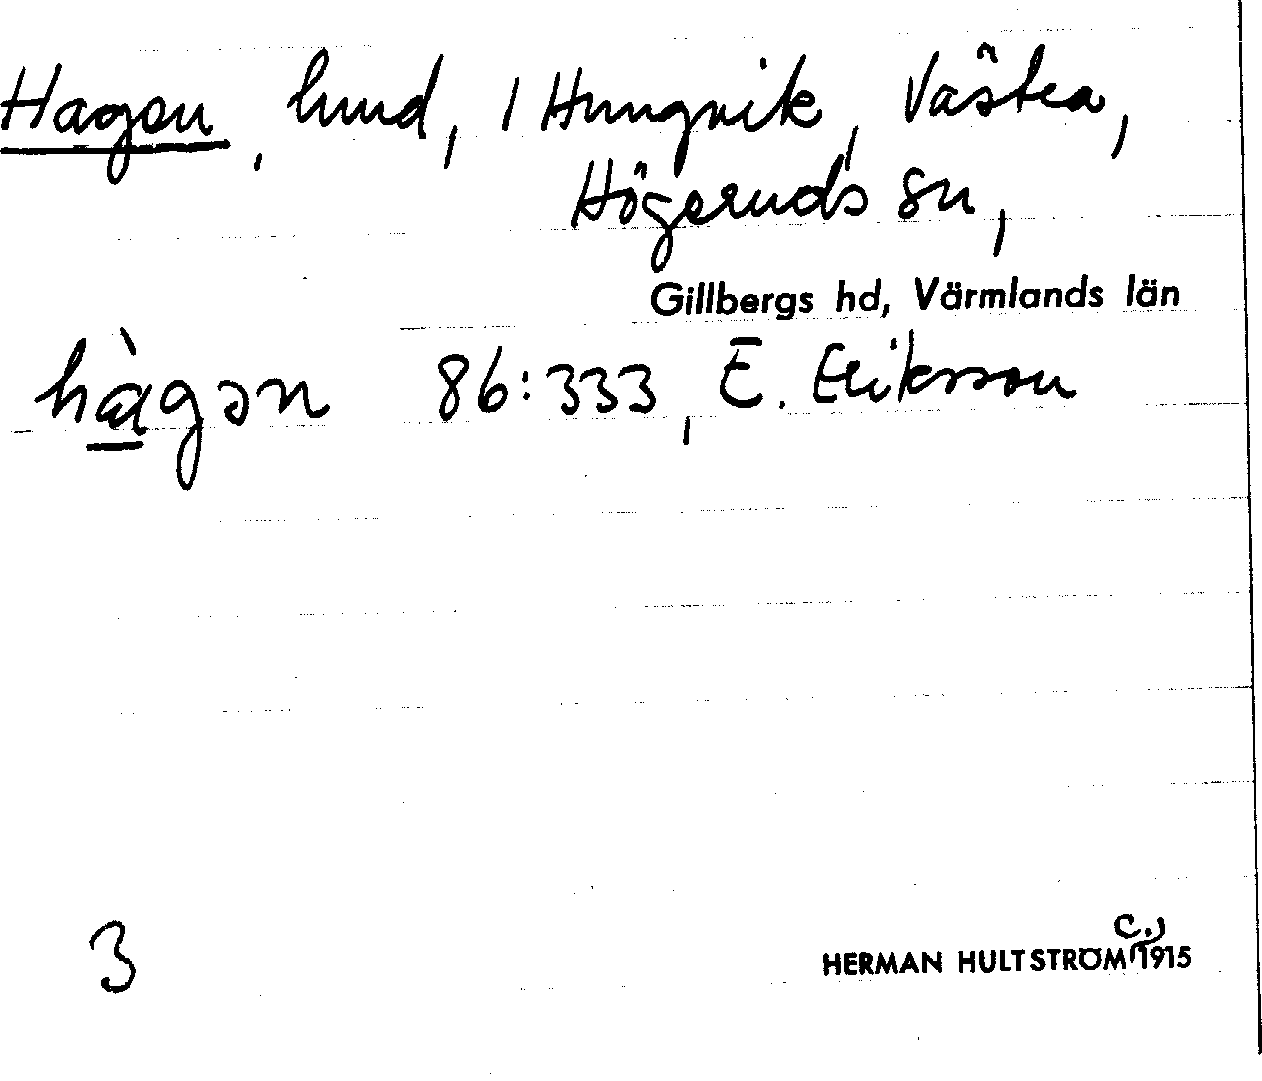 Hagen, lund, 1 Hungvik, Västra,
Högeruds sn,
Gillbergs hd, Värmlands län
hàgɔn 86:333, E. Eriksson
3 HERMAN HULTSTRÖM (C.) 1915